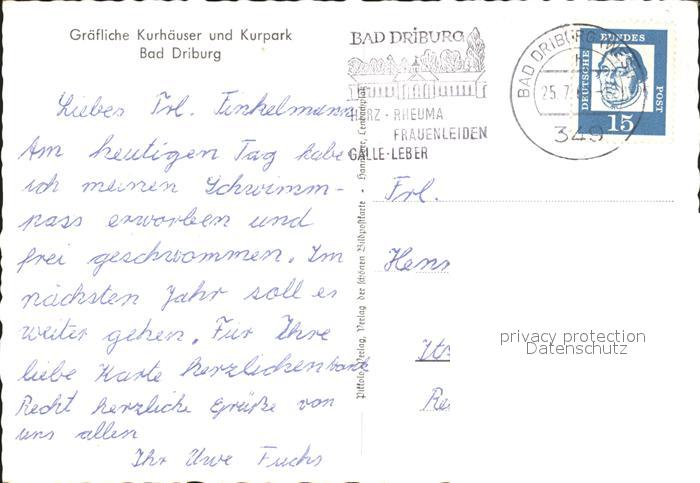 Gräfliche Kurhäuser und Kurpark
Bad Driburg
Liebes Frl. Finkelmann
Am heutigen Tag habe
ich meinen Schwimm-
pass erworben und
frei geschwommen. Im
nächsten Jahr soll es
weiter gehen. Für Ihre
liebe Karte herzlichen Dank
Recht herzliche Grüße von
uns allen
Ihr Uwe Fuchs
Pikkolo-Verlag, Verlag der schönen Bildpostkarte · Hannover,
BAD DRIBURG
HERZ · RHEUMA
FRAUENLEIDEN
GALLE · LEBER
BAD DRIBURG
25.7.
349
DEUTSCHE
BUNDES
POST
15
Frl.
Hann
privacy protection
Datenschutz